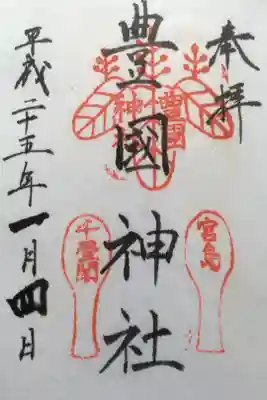 奉拝
豊國神社
豊國
神社
宮島
千畳閣
平成二十五年一月四日